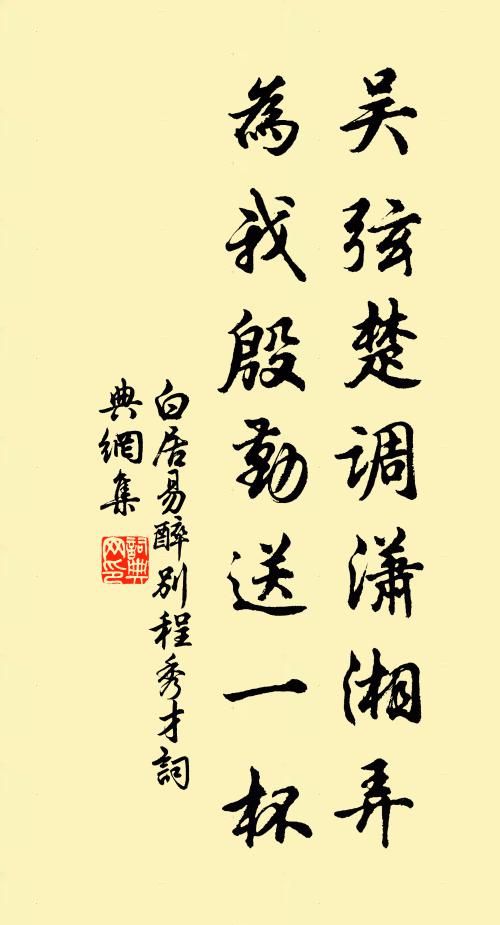 吴弦楚调潇湘弄
為我殷勤送一杯
白居易醉别程秀才詞
典網集
詞典网印